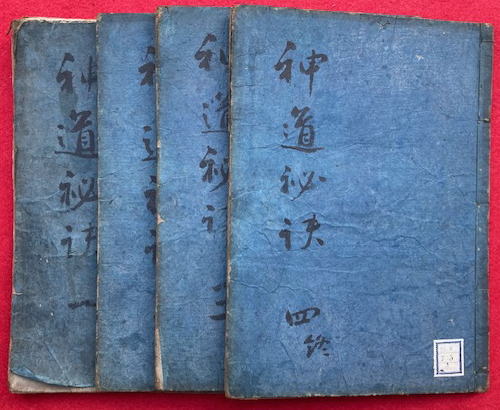 神道秘訣 一
神道秘訣 三
神道秘訣 四終